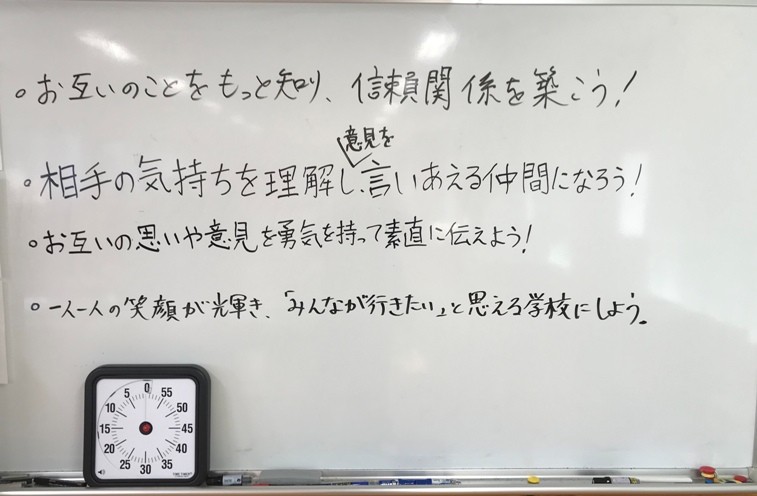 。お互いのことをもっと知り、信頼関係を築こう!
意見を
。相手の気持ちを理解し、言いあえる仲間になろう!
。お互いの思いや意見を勇気を持って素直に伝えよう!
。一人一人の笑顔が輝き、「みんなが行きたい」と思える学校にしよう。
0
5 55
10 50
15 45
20 40
25 35
30
TIME TIMER